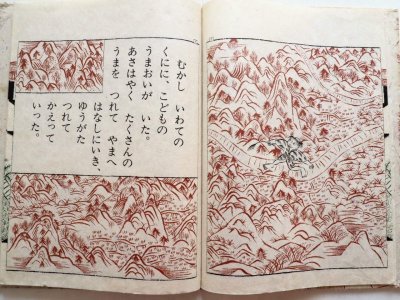 むかし いわての
くにに、こどもの
うまおいが いた。
あさはやく たくさんの
うまを つれて やまへ
はなしにいき、
ゆうがた
つれて
かえって
いった。